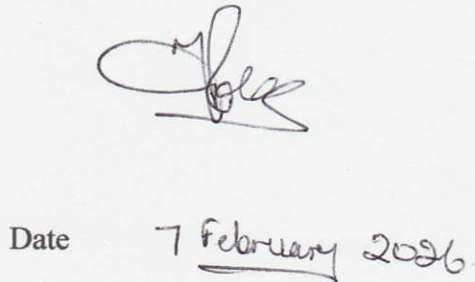 Date 7 February 2026.